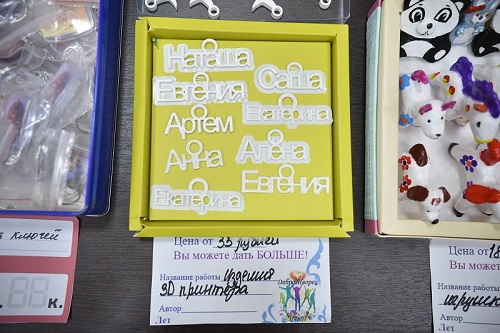 Наташа
Евгения
Саша
Артем
Екатерина
Анна
Алена
Екатерина
Евгения
ключей
к.
Цена от 33 рублей
Вы можете дать БОЛЬШЕ!
Название работы изделия
3D принтера
Автор
Лет
Цена от 18
Вы может
Название
игрушк
Автор
Лет